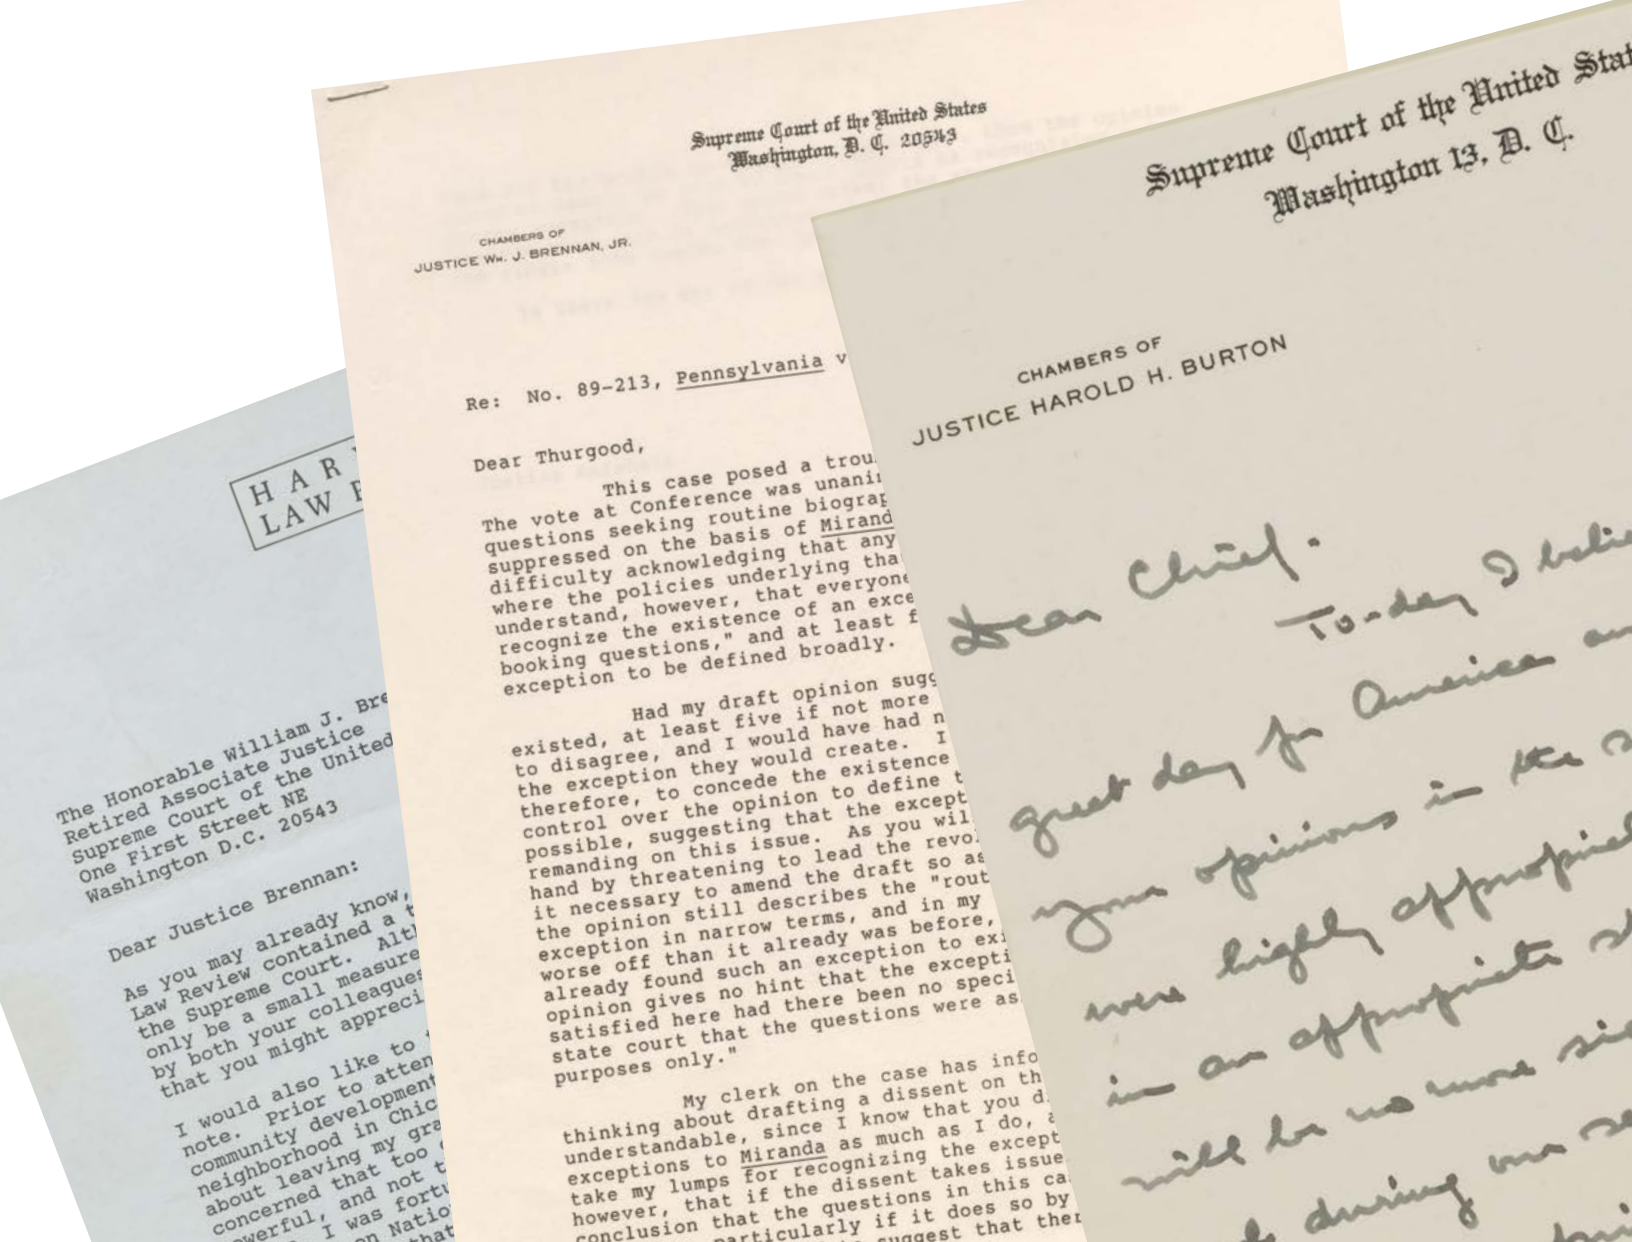 HAR
LAW
The Honorable William J. Bre
Retired Associate Justice
Supreme Court of the United
One First Street NE
Washington D.C. 20543
Dear Justice Brennan:
As you may already know,
Law Review contained a t
the Supreme Court. Alt
only be a small measure
by both your colleagues
that you might appreci
I would also like to
note. Prior to atten
community development
neighborhood in Chic
about leaving my gra
concerned that too
owerful, and not t
I was fortu
on Natio
that
Supreme Court of the United States
Washington, D. C. 20543
CHAMBERS OF
JUSTICE Wm. J. BRENNAN, JR.
Re: No. 89-213, Pennsylvania v
Dear Thurgood,
This case posed a trou
The vote at Conference was unani
questions seeking routine biograp
suppressed on the basis of Mirand
difficulty acknowledging that any
where the policies underlying tha
understand, however, that everyone
recognize the existence of an exce
booking questions," and at least f
exception to be defined broadly.
Had my draft opinion sugg
existed, at least five if not more
to disagree, and I would have had n
the exception they would create. I
therefore, to concede the existence
control over the opinion to define t
possible, suggesting that the except
remanding on this issue. As you wil
hand by threatening to lead the revo
it necessary to amend the draft so as
the opinion still describes the "rout
exception in narrow terms, and in my
worse off than it already was before,
already found such an exception to exi
opinion gives no hint that the excepti
satisfied here had there been no speci
state court that the questions were as
purposes only."
My clerk on the case has info
thinking about drafting a dissent on th
understandable, since I know that you di
exceptions to Miranda as much as I do, a
take my lumps for recognizing the except
however, that if the dissent takes issue
conclusion that the questions in this ca
particularly if it does so by
suggest that ther
Supreme Court of the United Stat
Washington 13, D. C.
CHAMBERS OF
JUSTICE HAROLD H. BURTON
Dear Chief.
To-day I belie
great day for America an
your opinions in the s
were highly appropriat
in an appropriate
will be no more si
during our se